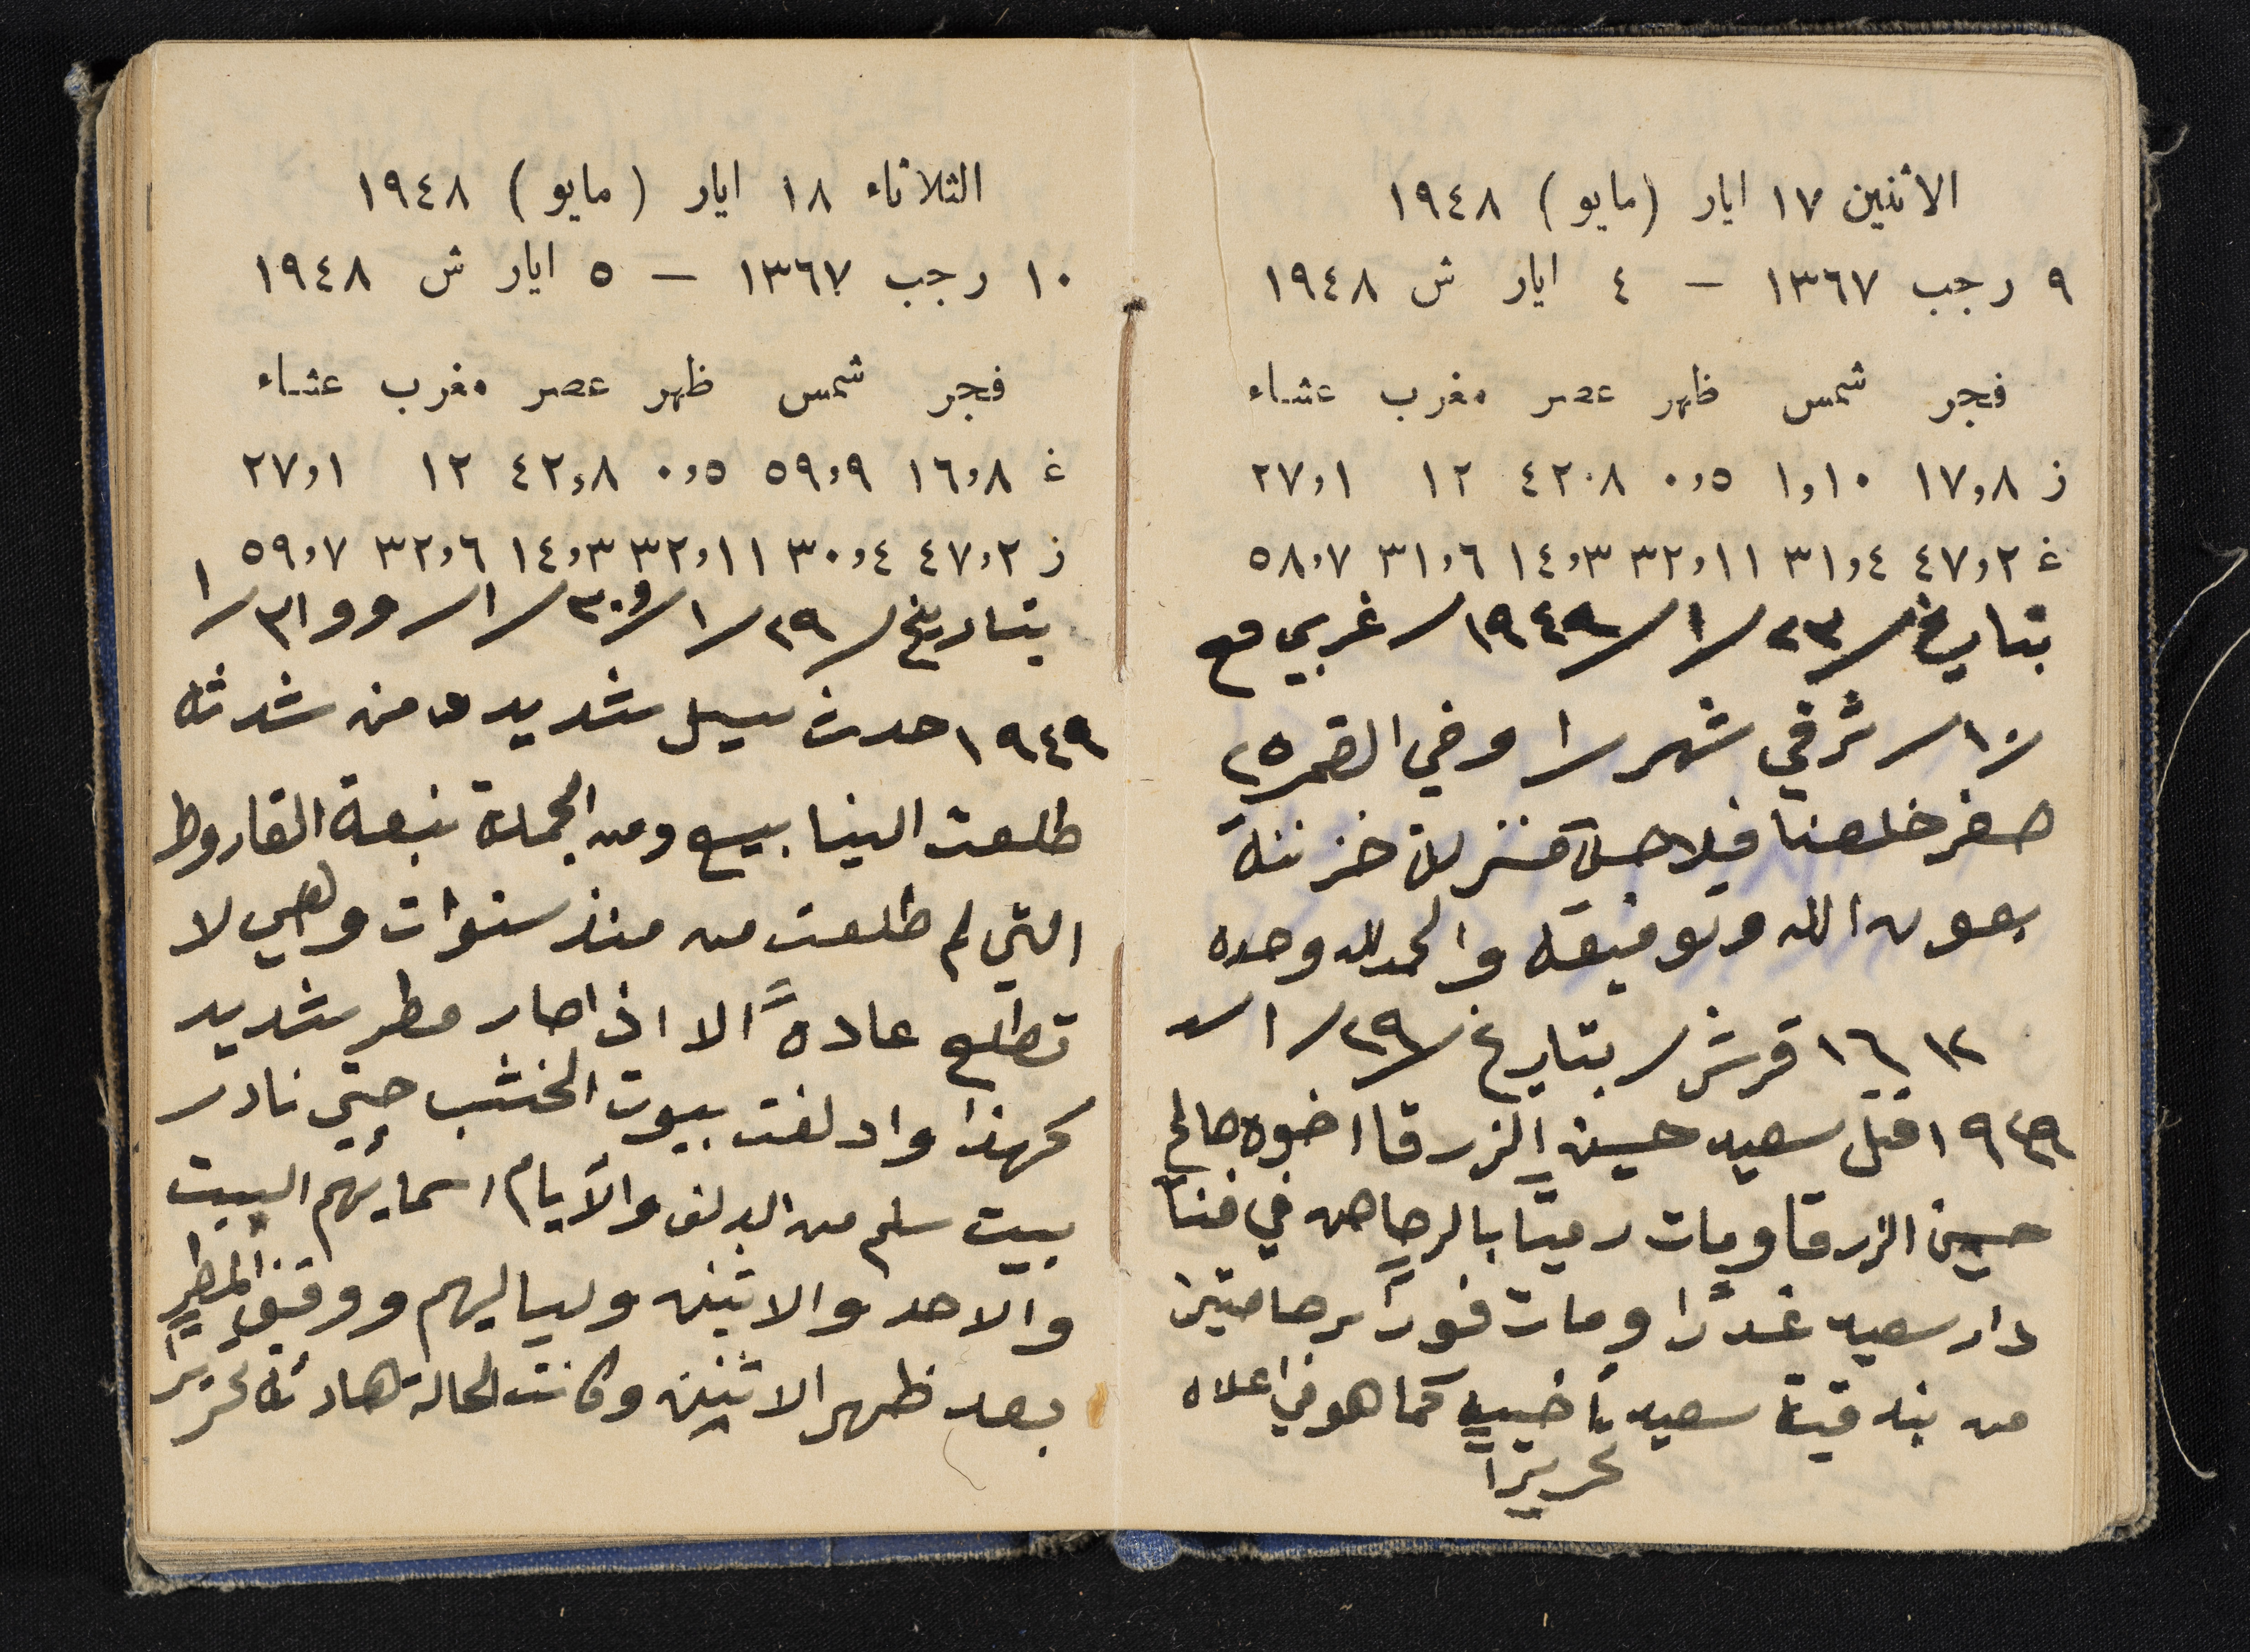 الاثنين ١٧ ايار (مايو) ١٩٤٨
٩ رجب ١٣٦٧ – ٤ ايار ش ١٩٤٨
فجر شمس ظهر عصر مغرب عشاء
ز ١٧,٨ ١,١٠ ٠,٥ ٤٢٠٨ ١٢ ٢٧,١
غ ٤٧,٢ ٣١,٤ ٣٢,١١ ١٤,٣ ٣١,٦ ٥٨,٧
بتاريخ /٢٣/١/١٩٤٩/ غربي مع
/١٠/ شرقي شهر /١ وفي القمر ٢٥
صفر خلعنا منزلة خزنة
بعون الله وتوفيقه والحمد لله وحده
١٢ ١٦ قرش / بتاريخ /٢٩/١/
١٩٤٩ قتل سعيد حسين الزرقا اخوه صالح
حسين الزرقا ومات رميًا بالرصاص في فنا
دار سعيد غدرًا ومات فورًا برصاصتين
من بندقية سعيد اخيه كما هو في اعلاه
تحريرًا
الثلاثاء ١٨ ايار (مايو) ١٩٤٨
١٠ رجب ١٣٦٧ – ٥ ايار ش ١٩٤٨
فجر شمس ظهر عصر مغرب عشاء
غ ١٦,٨ ٥٩,٩ ٠,٥ ٤٢,٨ ١٢ ٢٧,١
ز ٤٧,٢ ٣٠,٤ ٣٢,١١ ١٤,٣ ٣٢,٦ ٥٩,٧
بتاريخ /٢٩/١/و٣٠/١/ و و٣١/١
١٩٤٩ حدث سيل شديد من شدته
طلعت الينابيع ومن الجملة نبعة القاروط
التي لم طلعت من منذ سنوات وهي لا
تطلع عادةً الا اذا صار مطر شديد
كهذا وادلفت بيوت الخشب حتى نادر
بيت سلم من الدلف والأيام اسمايهم السبت
والاحد والاثنين ولياليهم ووقف المطر
بعد ظهر الاثنين وكانت الحالة هادئه تحريرًا